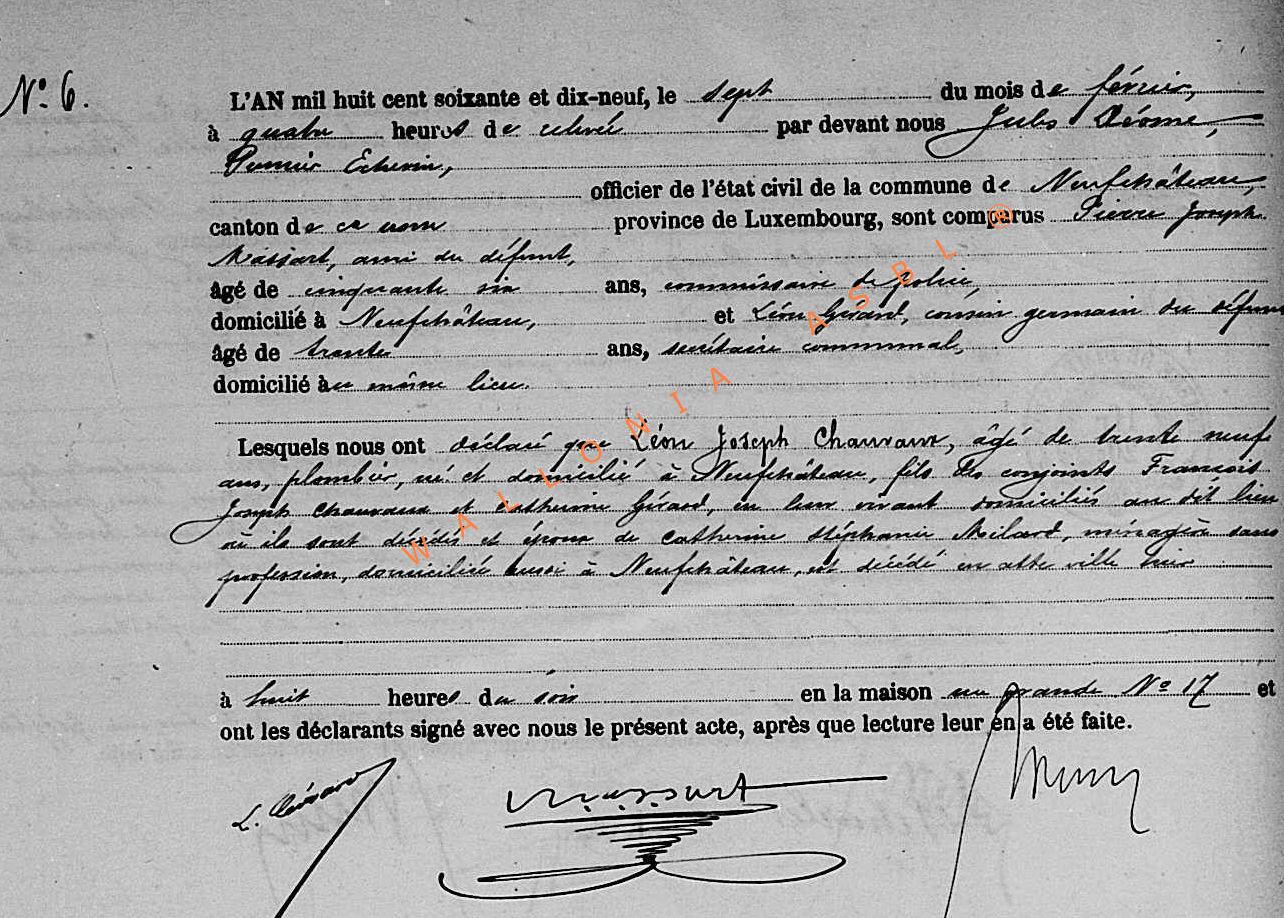 Nº 6.
L'AN mil huit cent soixante et dix-neuf, le sept du mois de février,
à quatre heures de relevée par devant nous Jules Dérome,
Premier Echevin,
officier de l'état civil de la commune de Neufchâteau,
canton de ce nom province de Luxembourg, sont comparus Pierre Joseph
Massart, ami du défunt,
âgé de cinquante six ans, commissaire de police,
domicilié à Neufchâteau, et Léon Gérard, cousin germain du défunt
âgé de trente ans, secrétaire communal,
domicilié au même lieu.
Lesquels nous ont déclaré que Léon Joseph Chauvaux, âgé de trente neuf
ans, plombier, né et domicilié à Neufchâteau, fils des conjoints François
Joseph Chauvaux et Catherine Gérard, en leur vivant domiciliés au dit lieu
où ils sont décédés et époux de Catherine Stéphanie Milard, ménagère sans
profession, domiciliée aussi à Neufchâteau, est décédé en cette ville hier
à huit heures du soir en la maison rue grande Nº 17 et
ont les déclarants signé avec nous le présent acte, après que lecture leur en a été faite.
L. Gérard Massart
WALLONIA ASBL ®